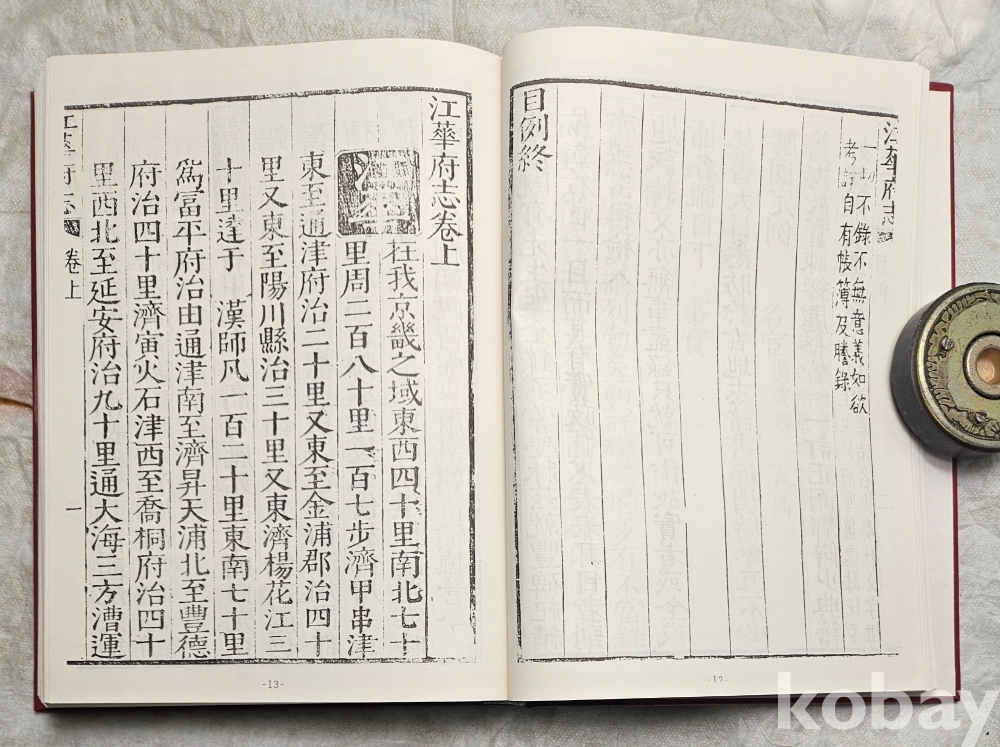 江華府志
不錄不無意義如欲
考 自有帳簿及謄錄
目例終
-12-
江華府志卷上
在我京畿之域東西四十里南北七十
里周二百八十里一百七步濟甲串津
東至通津府治二十里又東至金浦郡治四十
里又東至陽川縣治三十里又東濟楊花江三
十里達于 漢師凡一百二十里東南七十里
爲富平府治由通津南至濟昇天浦北至豐德
府治四十里濟寅火石津西至喬桐府治四十
里西北至延安府治九十里通大海三方漕運
江華府志 卷上 一
-13-
kobay